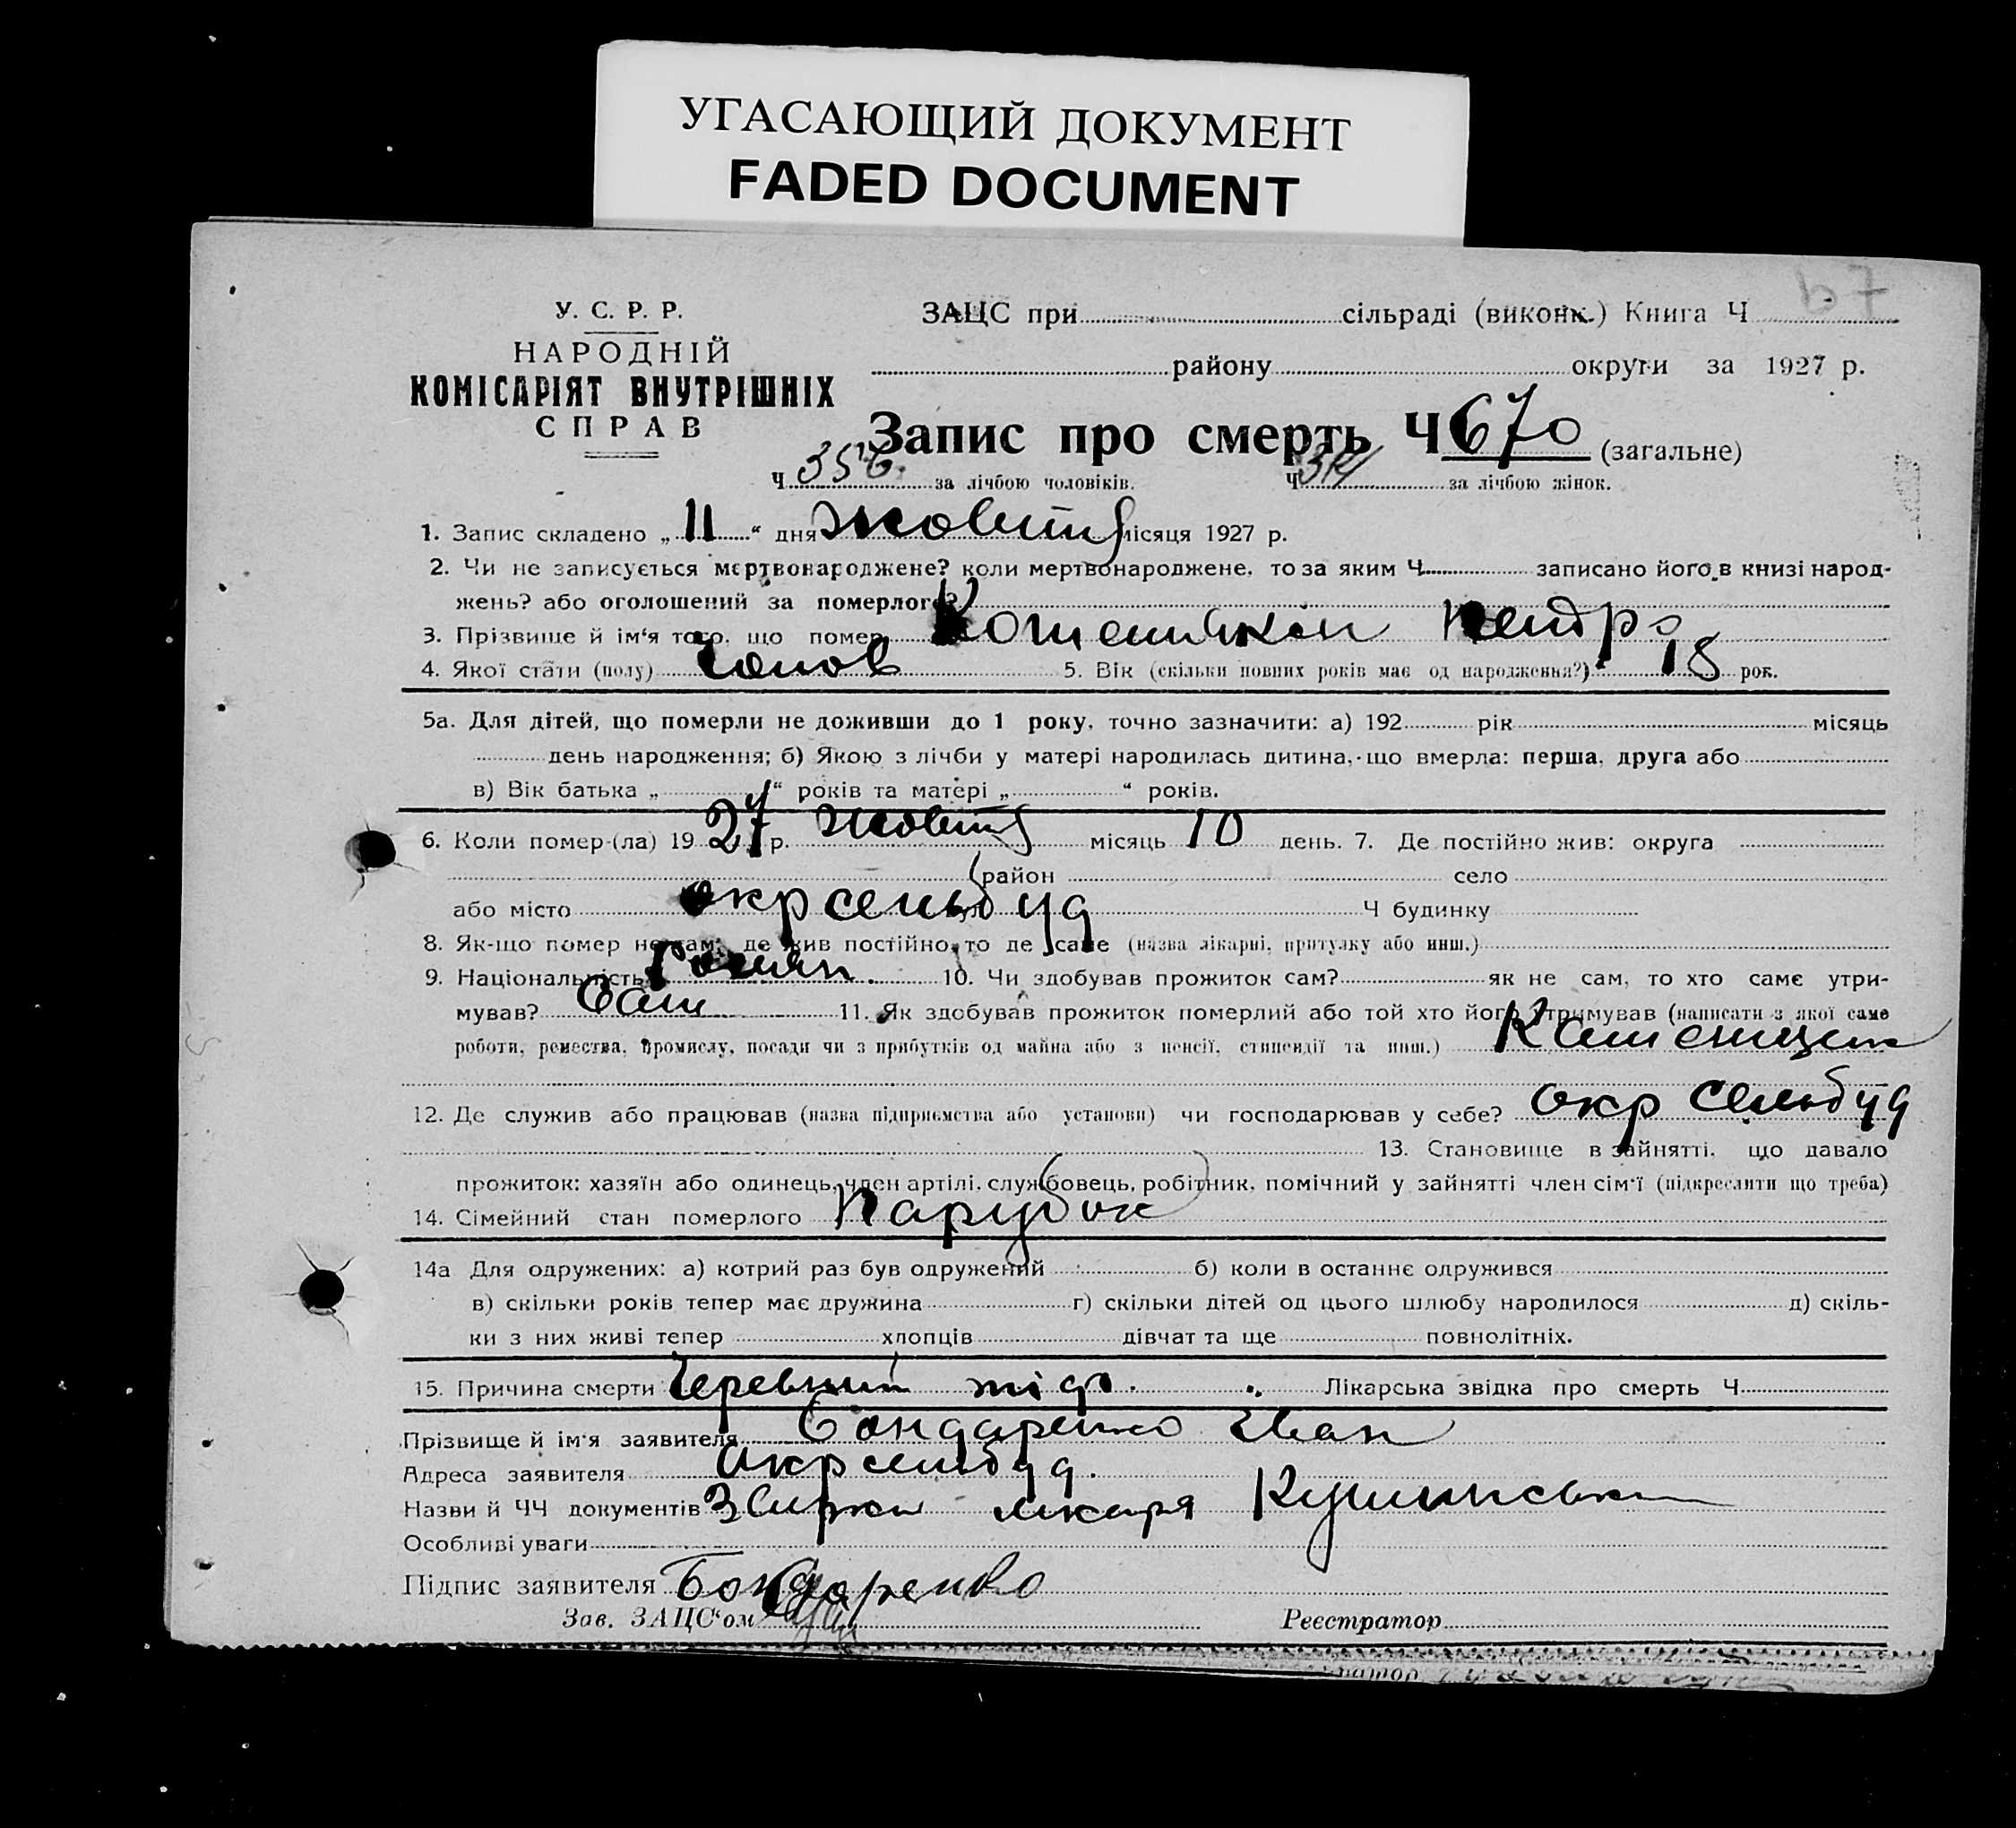 УГАСАЮЩИЙ ДОКУМЕНТ
FADED DOCUMENT
У. С. Р. Р.
НАРОДНІЙ
КОМІСАРІЯТ ВНУТРІШНІХ
СПРАВ
ЗАЦС при сільраді (виконк.) Книга Ч
району округи за 1927 р.
Запис про смерть Ч 670 (загальне)
Ч 356 за лічбою чоловіків. Ч 314 за лічбою жінок.
1. Запис складено „ 11 “ дня Жовтня місяця 1927 р.
2. Чи не записується мертвонароджене? коли мертвонароджене, то за яким Ч записано його в книзі народ-
жень? або оголошений за померлого?
3. Прізвище й ім'я того, що помер Петро
4. Якої стати (полу) чолов 5. Вік (скільки повних років має од народження?) 18 рок.
5а. Для дітей, що померли не доживши до 1 року, точно зазначити: а) 192 рік місяць
день народження; б) Якою з лічби у матері народилась дитина, що вмерла: перша, друга або
в) Вік батька „ “ років та матері „ “ років.
6. Коли помер-(ла) 19 27 р. Жовтня місяць 10 день. 7. Де постійно жив: округа
район село
або місто окрсельбуд Ч будинку
8. Як-що помер не там, де жив постійно, то де саме (назва лікарні, притулку або инш.)
9. Національність 10. Чи здобував прожиток сам? як не сам, то хто саме утри-
мував? Сам 11. Як здобував прожиток померлий або той хто його утримував (написати з якої саме
роботи, ремества, промислу, посади чи з прибутків од майна або з пенсії, стипендії та инш.)
12. Де служив або працював (назва підприємства або установи) чи господарював у себе? окр сельбуд
13. Становище в зайнятті, що давало
прожиток: хазяїн або одинець, член артілі, службовець, робітник, помічний у зайнятті член сім'ї (підкреслити що треба)
14. Сімейний стан померлого Парубок
14а Для одружених: а) котрий раз був одружений б) коли в останнє одружився
в) скільки років тепер має дружина г) скільки дітей од цього шлюбу народилося д) скіль-
ки з них живі тепер хлопців дівчат та ще повнолітніх.
15. Причина смерти Черевний тіф. Лікарська звідка про смерть Ч
Прізвище й ім'я заявителя Бондаренко Іван
Адреса заявителя Окрсельбуд.
Назви й ЧЧ документів лікаря
Особливі уваги
Підпис заявителя Бондаренко
Зав. ЗАЦС'ом Реєстратор